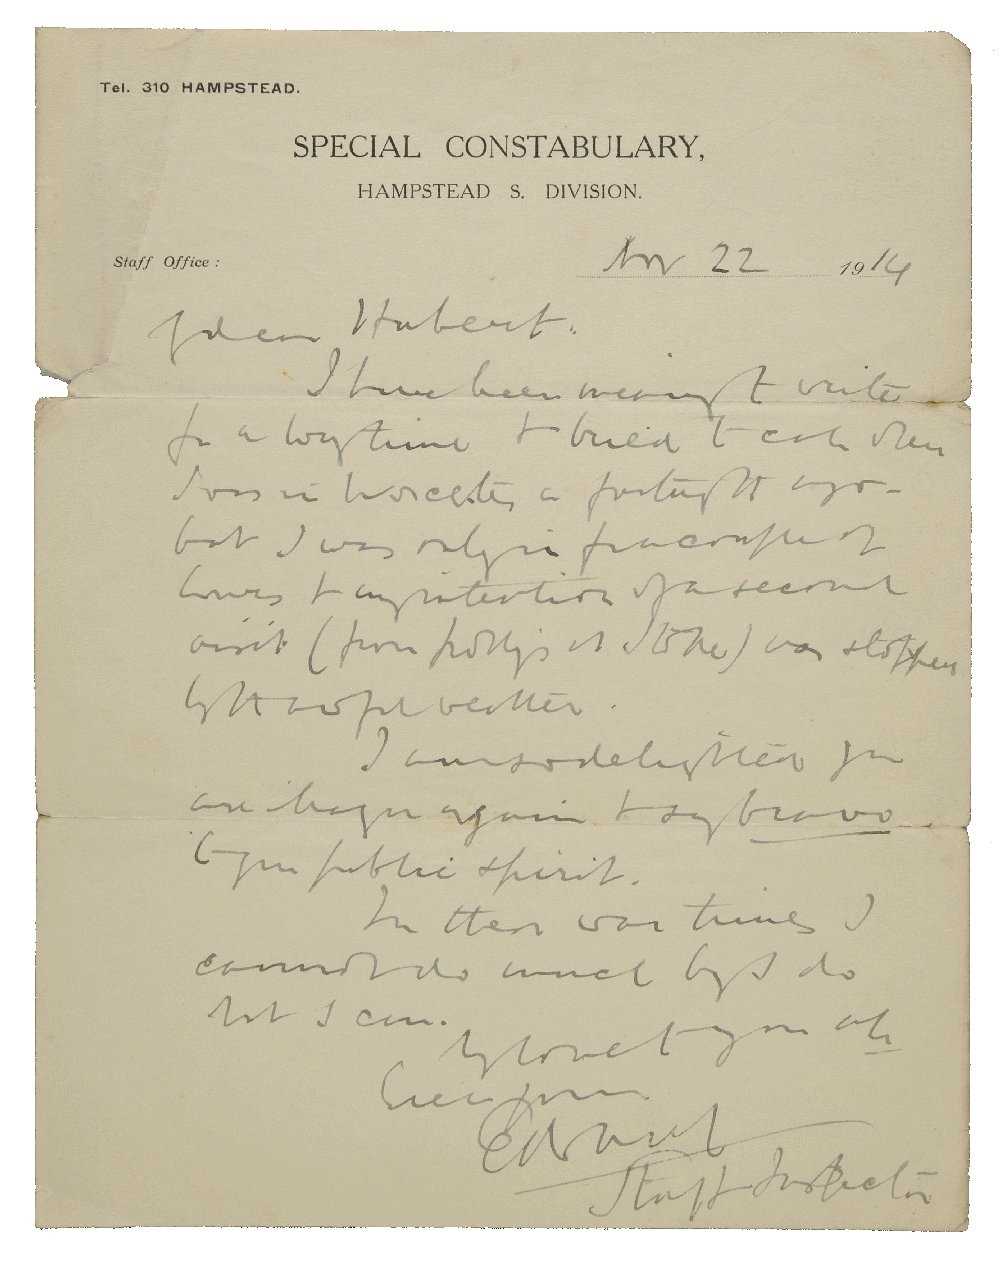 Tel. 310 HAMPSTEAD.
SPECIAL CONSTABULARY,
HAMPSTEAD S. DIVISION.
Staff Office :
Nov 22 1914
My dear Hubert.
I have been meaning to write
for a long time & tried to call when
I was in Worcester a fortnight ago –
but I was only in for a couple of
hours & my intention of a second
visit (from Stoke) was stopped
by the awful weather.
I am so delighted you
are happier again & say bravo
to your public spirit.
In these war times I
cannot do much but I do
what I can.
My love to you all
Ever yours
Edward
Staff Inspector